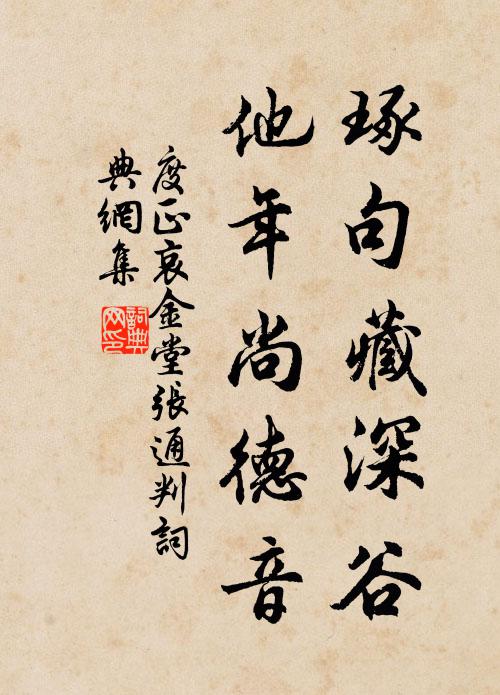 琢句藏深谷
他年尚德音
度正哀金堂張通判詞
典網集
詞典網印